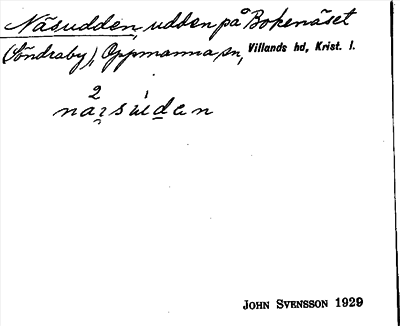 Näsudden, udden på Bokenäset
(Söndraby), Oppmanna sn, Villands hd, Krist. l.
JOHN SVENSSON 1929